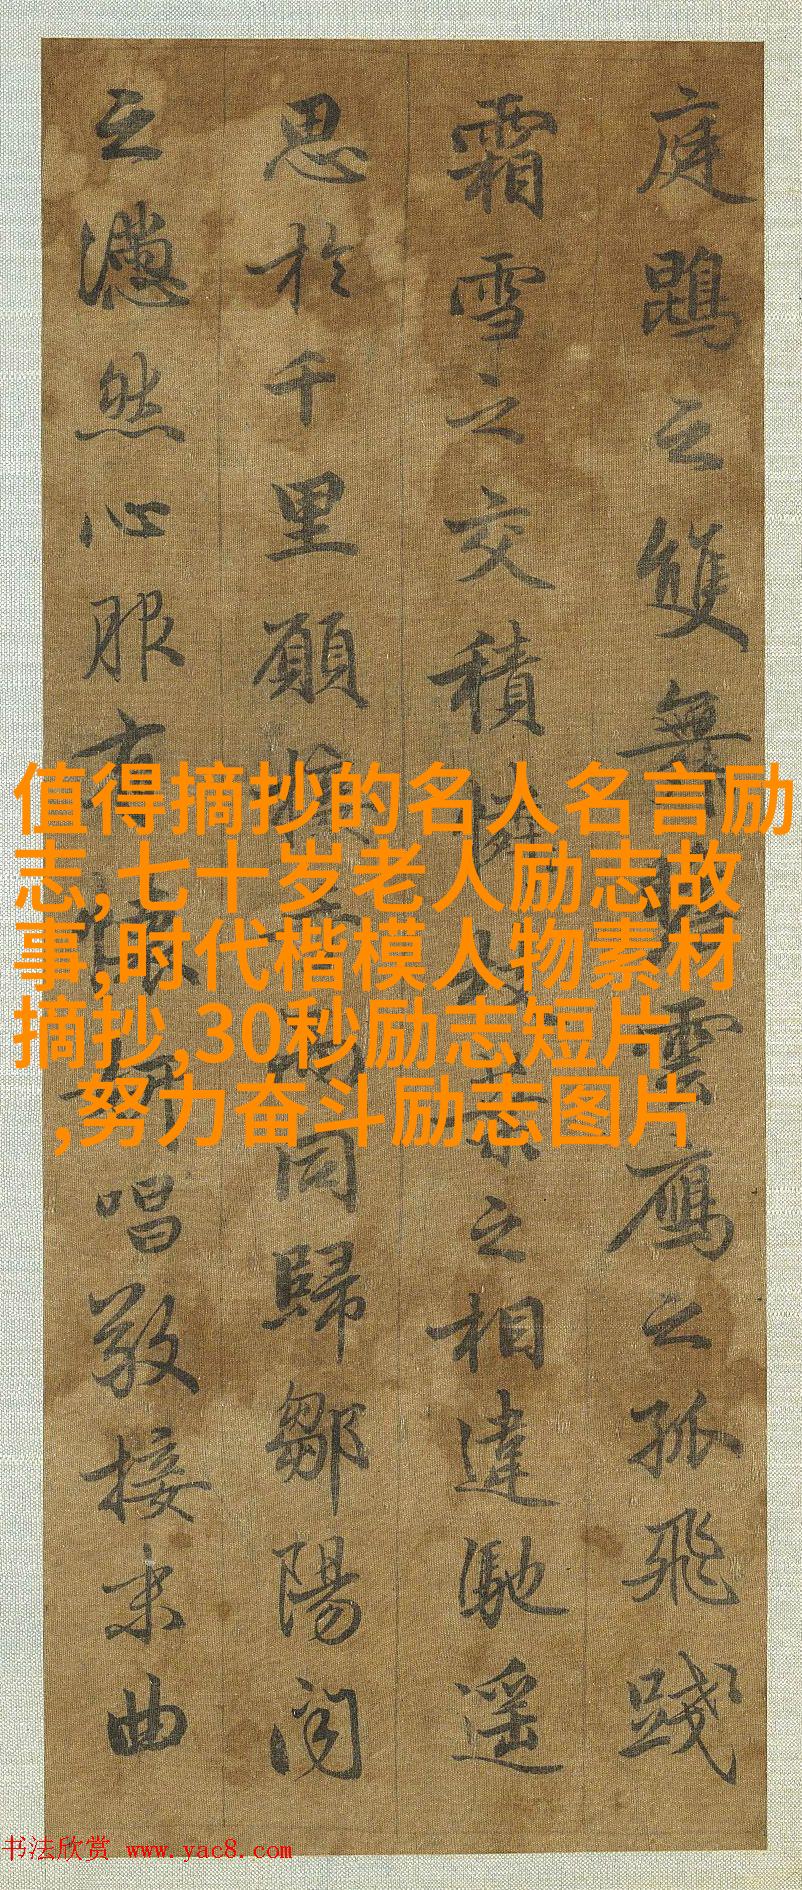 庭鵾之雙舞瞻雲鴈之孤飛踐
霜雪之交積憐枝葉之相違馳遥
思於千里願同歸鄒陽聞
之懣然心服有懷妍唱敬接末曲
值得摘抄的名人名言励
志,七十岁老人励志故
事,时代楷模人物素材
摘抄,30秒励志短片
,努力奋斗励志图片
书法欣赏 www.yac8.com